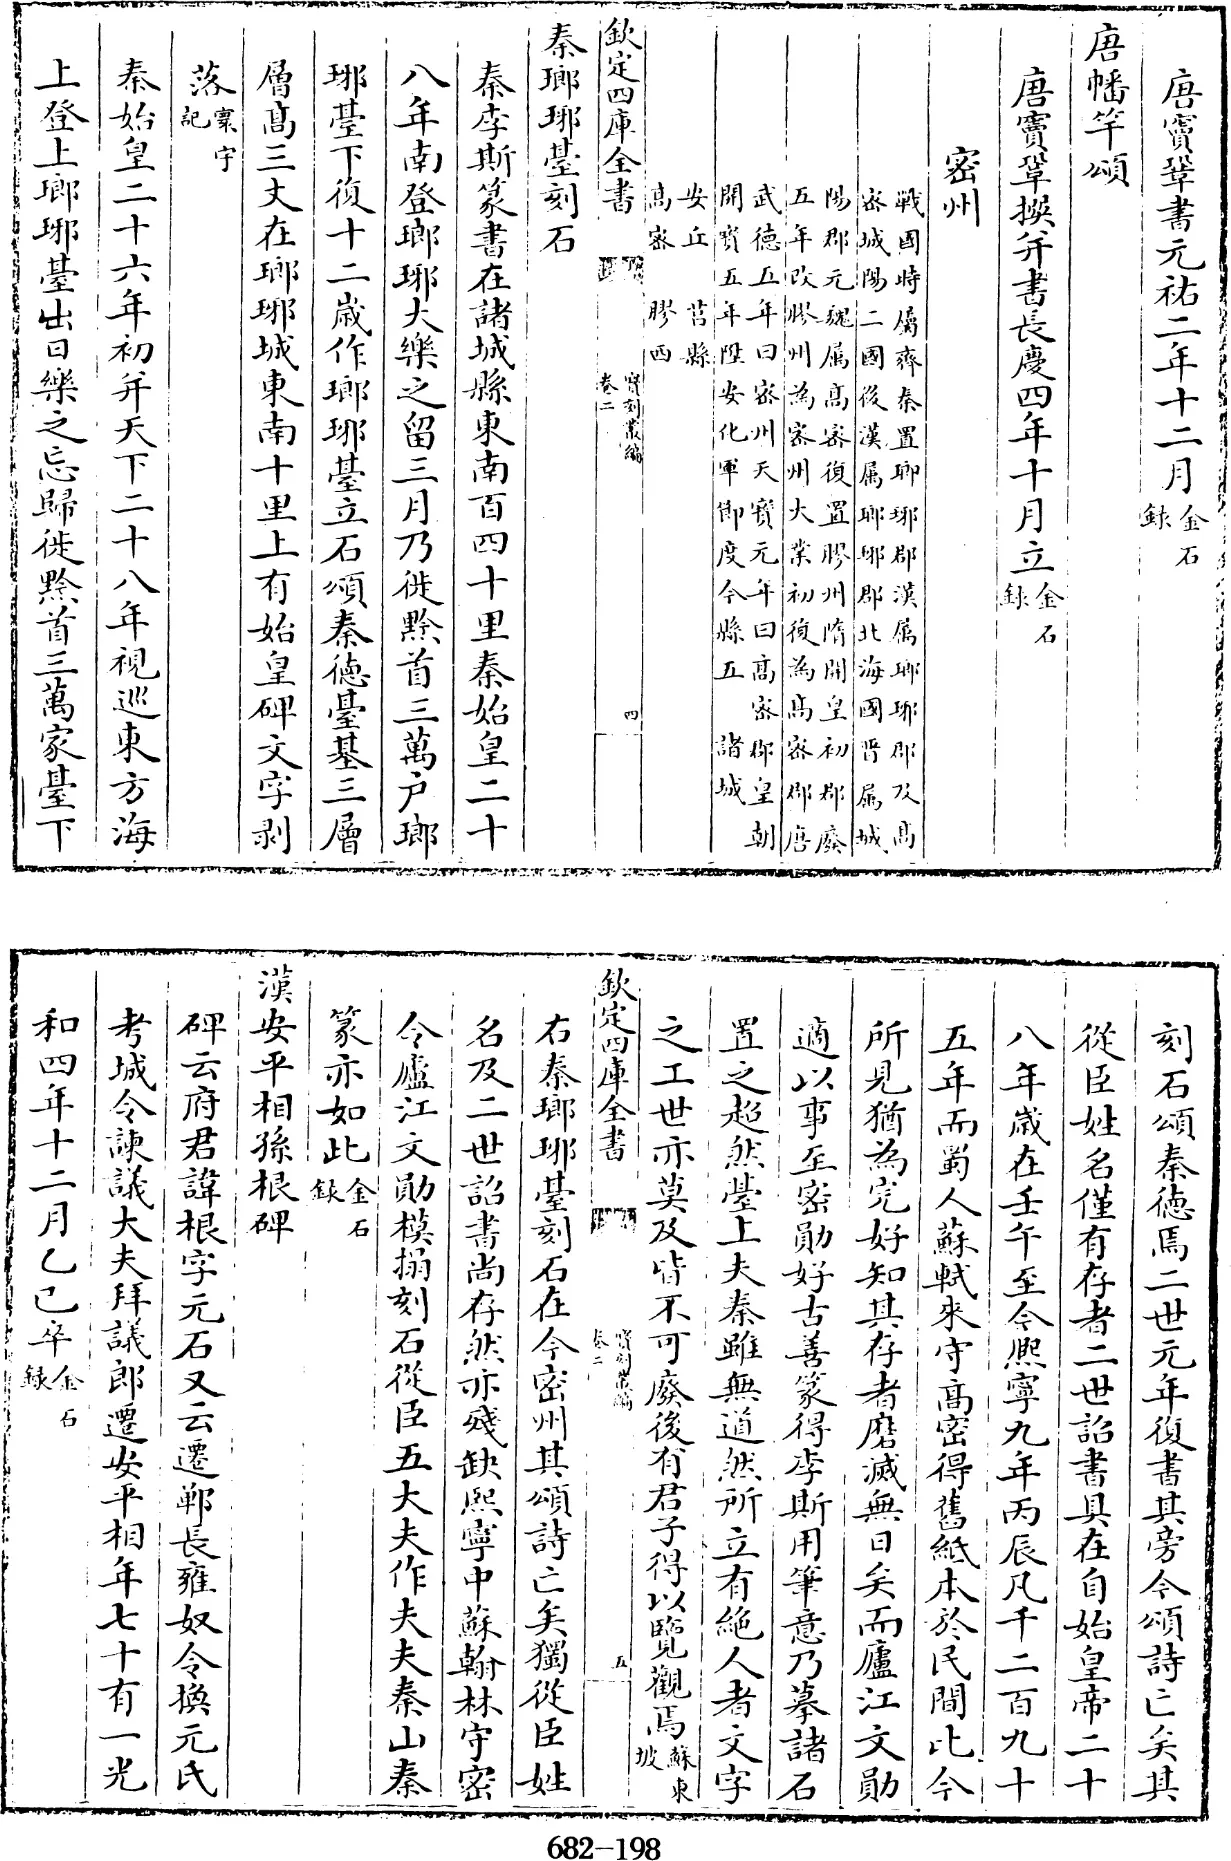 唐竇鞏書元祐二年十二月金石錄
唐幡竿頌
唐竇鞏撰并書長慶四年十月立金石錄
密州
戰國時屬齊秦置琅琊郡漢屬琅琊郡及高
密城陽二國後漢屬琅琊郡北海國晉屬城
陽郡元魏屬高密復置膠州隋開皇初郡廢
五年改膠州為密州大業初復為高密郡唐
武德五年曰密州天寶元年曰高密郡皇朝
開寶五年陞安化軍節度今縣五 諸城
安丘 莒縣
高密 膠西
欽定四庫全書
寶刻叢編
卷二
四
秦瑯琊臺刻石
秦李斯篆書在諸城縣東南百四十里秦始皇二十
八年南登瑯琊大樂之留三月乃徙黔首三萬户瑯
琊臺下復十二歲作瑯琊臺立石頌秦德臺基三層
層髙三丈在瑯琊城東南十里上有始皇碑文字剥
落寰宇記
秦始皇二十六年初并天下二十八年視巡東方海
上登上瑯琊臺出日樂之忘歸徙黔首三萬家臺下
刻石頌秦德焉二世元年復書其旁今頌詩亡矣其
從臣姓名僅有存者二世詔書具在自始皇帝二十
八年歲在壬午至今熙寧九年丙辰凡千二百九十
五年而蜀人蘇軾來守高密得舊紙本於民間比今
所見猶為完好知其存者磨滅無日矣而廬江文勛
適以事至密勛好古善篆得李斯用筆意乃摹諸石
置之超然臺上夫秦雖無道然所立有絶人者文字
之工世亦莫及皆不可廢後有君子得以覽觀焉蘇東坡
欽定四庫全書
寶刻叢編
卷二
五
右秦瑯琊臺刻石在今密州其頌詩亡矣獨從臣姓
名及二世詔書尚存然亦殘缺熙寧中蘇翰林守密
令廬江文勛模搨刻石從臣五大夫作夫夫秦山秦
篆亦如此金石錄
漢安平相孫根碑
碑云府君諱根字元石又云遷鄆長雍奴令換元氏
考城令諫議大夫拜議郎遷安平相年七十有一光
和四年十二月乙巳卒金石錄
682-198